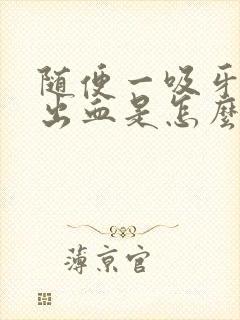 随便一吸牙
出血是怎麼
薄京官